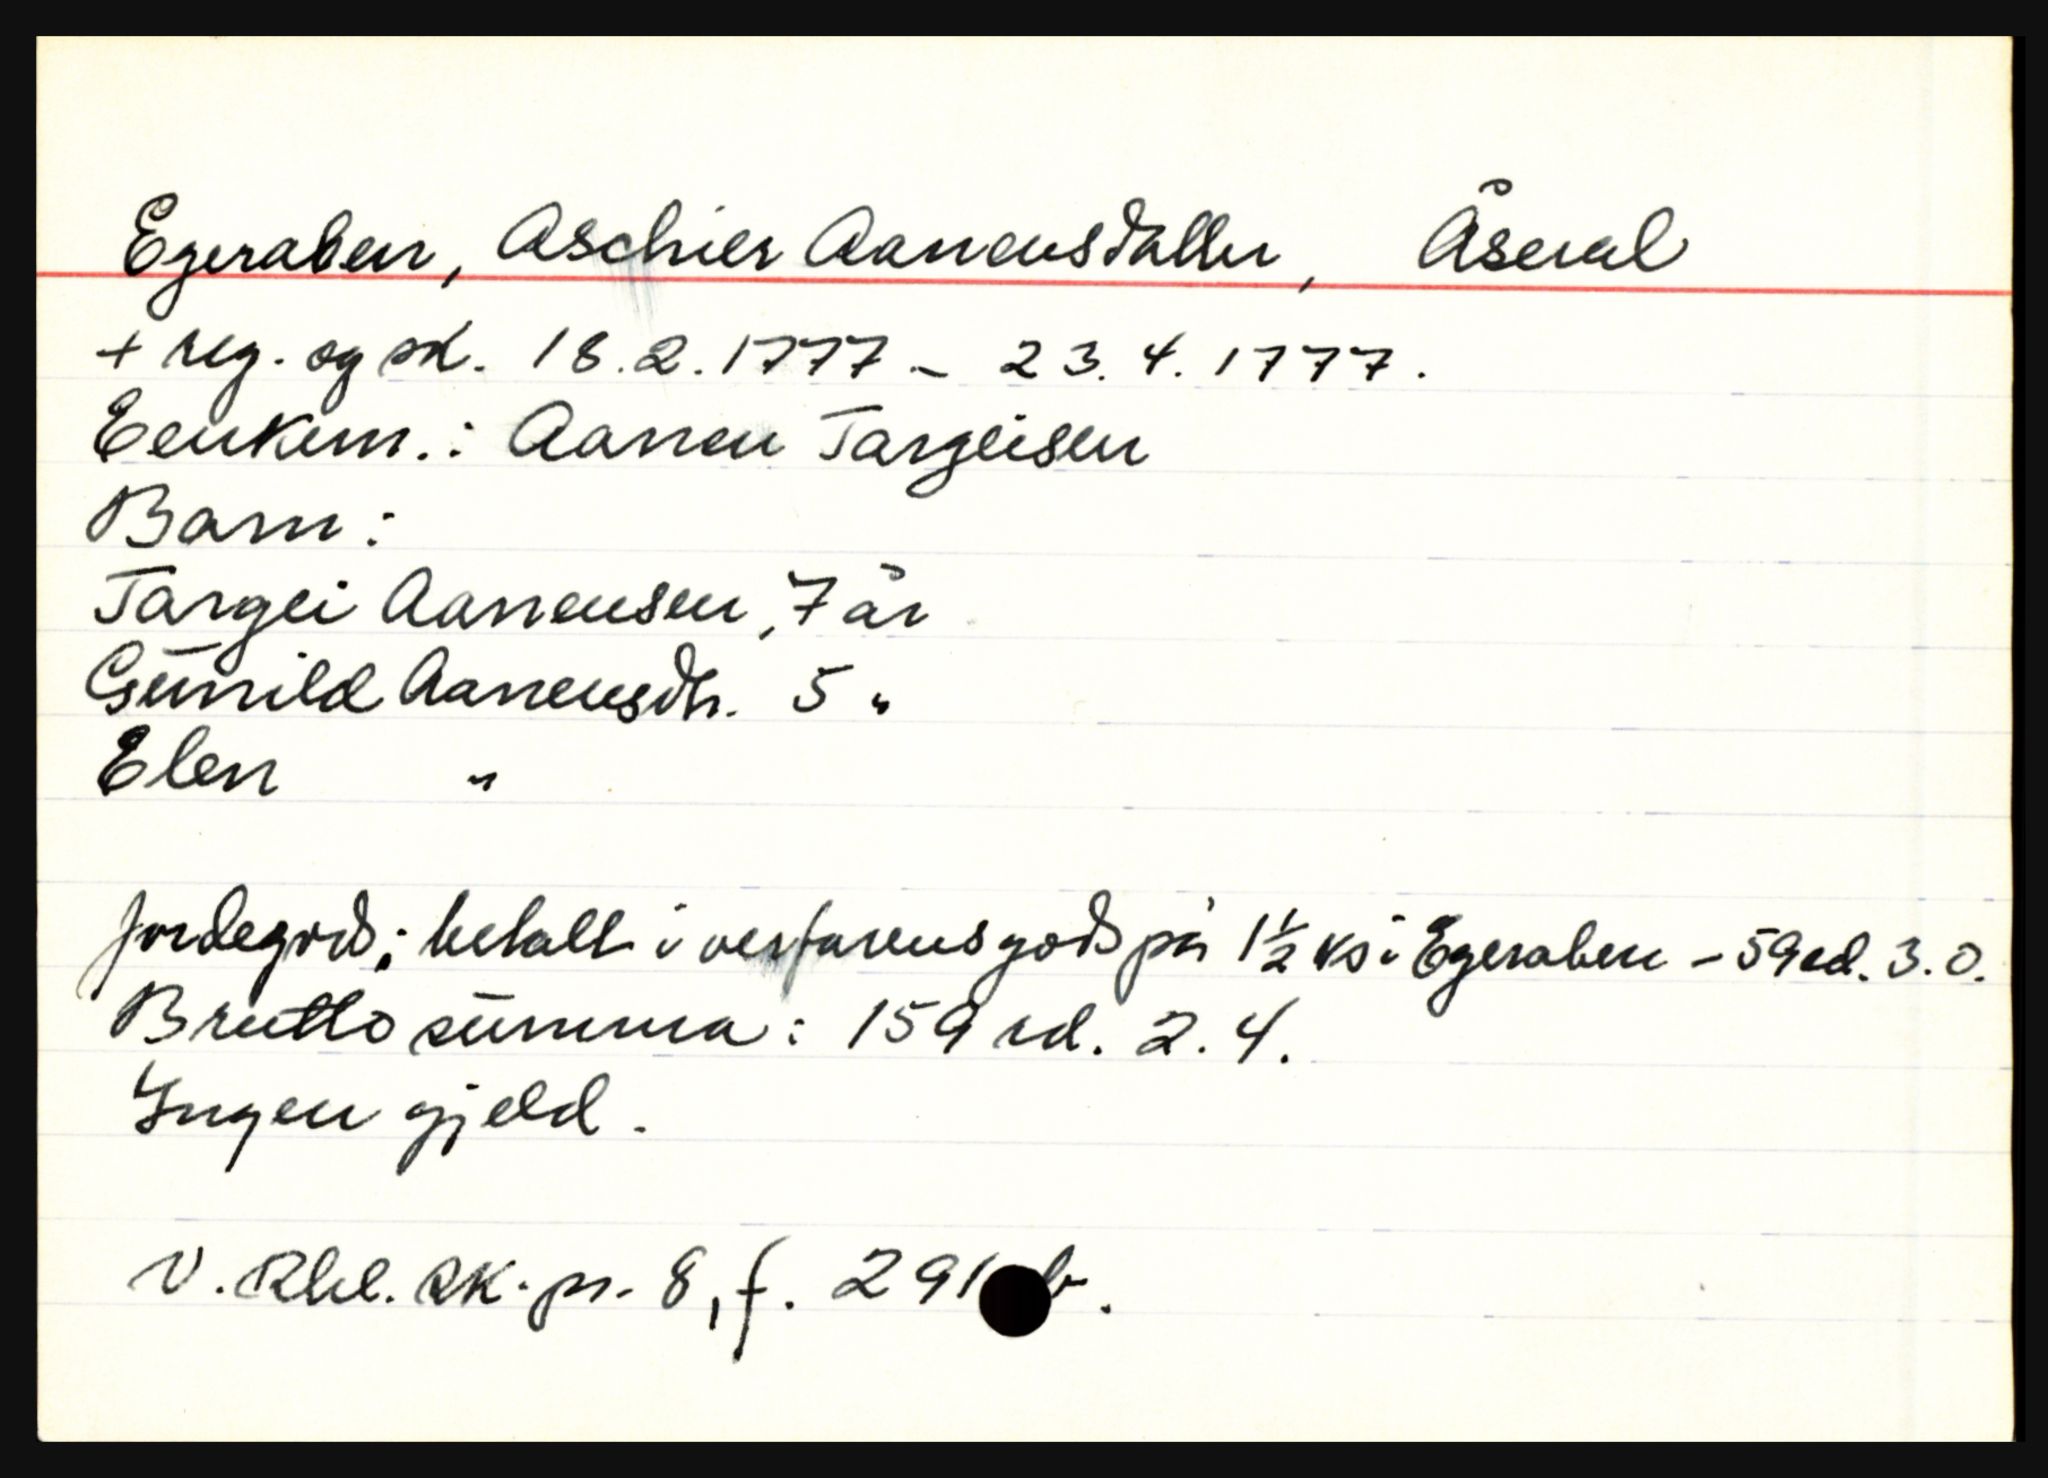 Egeraben, Aschier Aanensdatter, Åseral
+ reg. og sk. 18.2.1777 - 23.4.1777.
Eenkem.: Aanen Targeisen
Barn:
Targei Aanensen, 7 år
Gunild Aanensdtr. 5 "
Elen "
Jordegods; betalt i verfarensgods på 1½ ks i Egeraben - 59 rd. 3. 0.
Brutto summa: 159 rd. 2. 4.
Ingen gjeld.
V. Rbl. sk. pr. 8, f. 291 b.